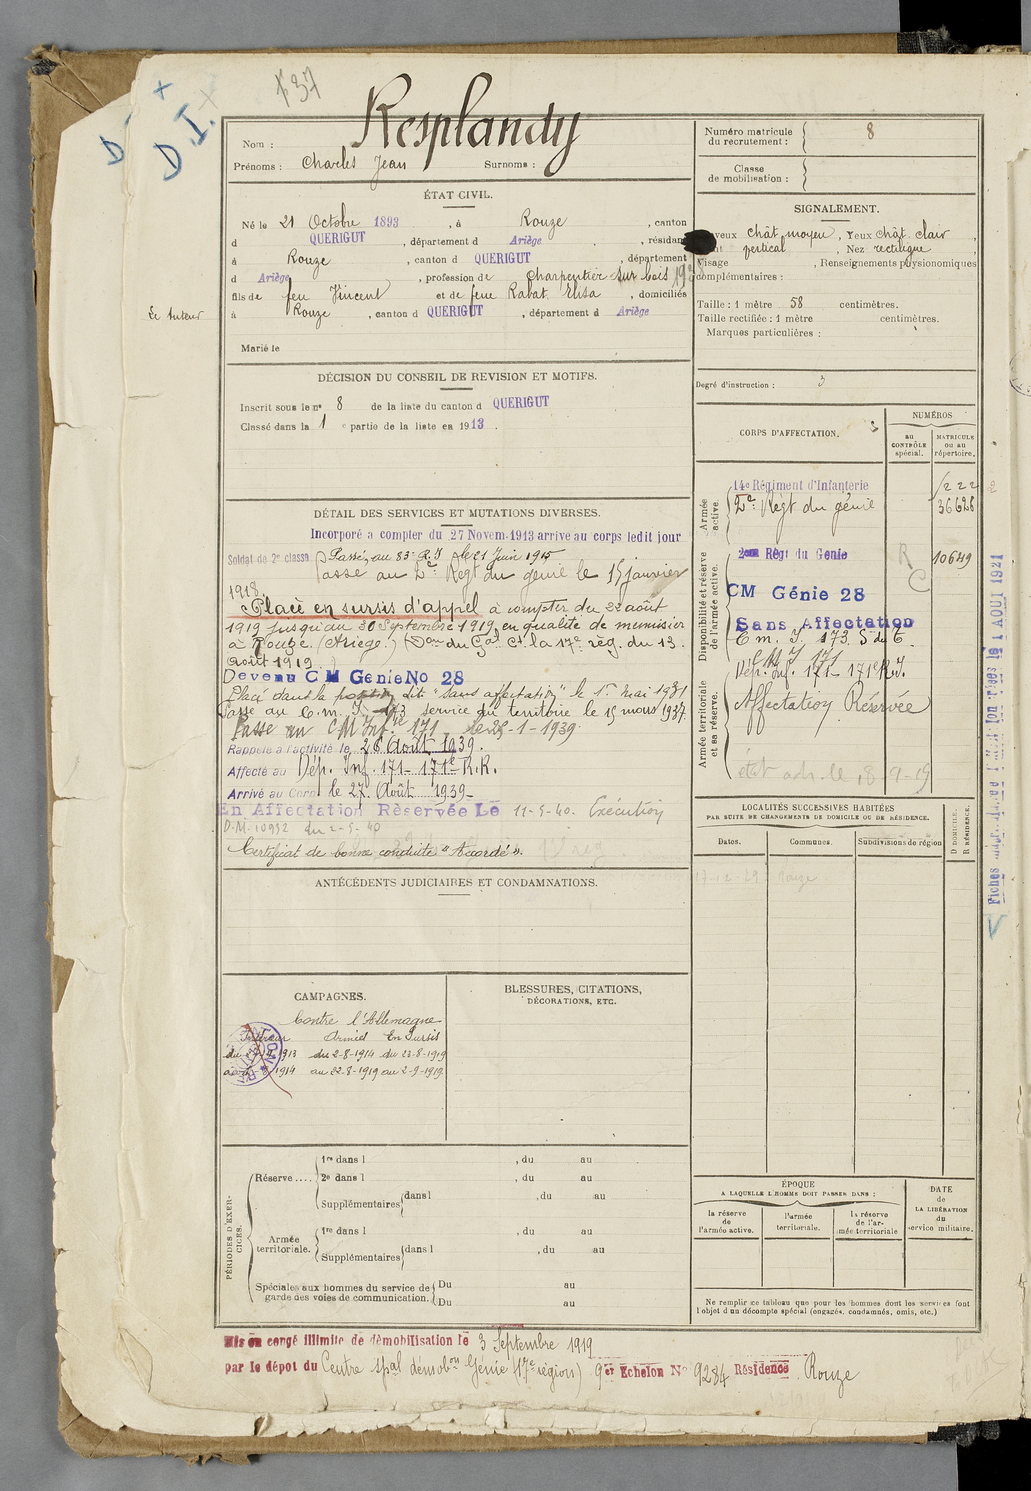 137
D
D.I.
Nom :
Resplandy
Prénoms :
Charles Jean
Surnoms :
ÉTAT CIVIL.
Né le 21 Octobre 1893 , à Rouze , canton
d QUERIGUT , département d Ariège , résidant
à Rouze , canton d QUERIGUT , département
d Ariège , profession de charpentier sur bois
fils de feu Vincent et de feue Rabat Elisa , domiciliés
à Rouze , canton d QUERIGUT , département d Ariège
Le tuteur
Marié le
DÉCISION DU CONSEIL DE REVISION ET MOTIFS.
Inscrit sous le nº 8 de la liste du canton d QUERIGUT
Classé dans la 1 e partie de la liste en 1913 .
DÉTAIL DES SERVICES ET MUTATIONS DIVERSES.
Incorporé à compter du 27 Novem. 1913 arrivé au corps ledit jour
Soldat de 2e classe Passé au 83e R.I. le 21 Juin 1915
Passé au 2e Régt du génie le 15 janvier
1918.
Placé en sursis d'appel à compter du 22 août
1919 jusqu'au 30 Septembre 1919 en qualité de menuisier
à Rouze (Ariège.) (Don du Gal Ct la 17e rég. du 13
août 1919.)
Devenu C M Génie No 28
Placé dans la position dit "sans affectation" le 1er mai 1931
Passé au C.m. I. 173 service du territoire le 15 mars 1937.
Passé au CM Infie 171 le 25-1-1939
Rappelé à l'activité le 26 Août 1939.
Affecté au Dép. Inf. 171 - 171e R.R.
Arrivé au Corps le 27 Août 1939-
En Affectation Réservée Le 11-5-40. Exécution
D.M. 10952 du 2-5-40
Certificat de bonne conduite "Accordé".
ANTÉCÉDENTS JUDICIAIRES ET CONDAMNATIONS.
CAMPAGNES.
Contre l'Allemagne
Intérieur Armées En Sursis
1913 du 2-8-1914 du 23-8-1919
1914 au 22-8-1919 au 2-9-1919
BLESSURES, CITATIONS,
DÉCORATIONS, ETC.
PÉRIODES D'EXER-
CICES.
Réserve ....
1re dans l , du au
2e dans l , du au
Supplémentaires dans l , du au
Armée
territoriale.
1re dans l , du au
Supplémentaires dans l , du au
Spéciales aux hommes du service de
garde des voies de communication.
Du au
Du au
Numéro matricule
du recrutement :
8
Classe
de mobilisation :
SIGNALEMENT.
Cheveux chât. moyen , Yeux chât. clair ,
Front vertical , Nez rectiligne ,
Visage , Renseignements physionomiques
complémentaires :
Taille : 1 mètre 58 centimètres.
Taille rectifiée : 1 mètre centimètres.
Marques particulières :
Degré d'instruction : 3
CORPS D'AFFECTATION.
NUMÉROS
au
CONTRÔLE
spécial.
MATRICULE
ou au
répertoire.
Armée
active.
14e Régiment d'Infanterie
2e Régt du génie 36628
Disponibilité et réserve
de l'armée active.
2me Régt du Génie 10649
R
C
CM Génie 28
Sans Affectation
C m. I. 173. S du T.
C M I 171
Dép. Inf. 171 - 171e R.I.
Armée territoriale
et sa réserve.
Affectation Réservée
LOCALITÉS SUCCESSIVES HABITÉES
PAR SUITE DE CHANGEMENTS DE DOMICILE OU DE RÉSIDENCE.
Dates.
Communes.
Subdivisions de région
D DOMICILE.
R RÉSIDENCE.
Rouze
ÉPOQUE
A LAQUELLE L'HOMME DOIT PASSER DANS :
la réserve
de
l'armée active.
l'armée
territoriale.
la réserve
de l'ar-
mée territoriale
DATE
de
LA LIBÉRATION
du
service militaire.
Ne remplir ce tableau que pour les hommes dont les services font
l'objet d'un décompte spécial (engagés, condamnés, omis, etc.)
Mis en congé illimité de démobilisation le 3 Septembre 1919
par le dépôt du Centre spal démobon Génie (17e région) 9er Echelon No 9284 Résidence Rouze